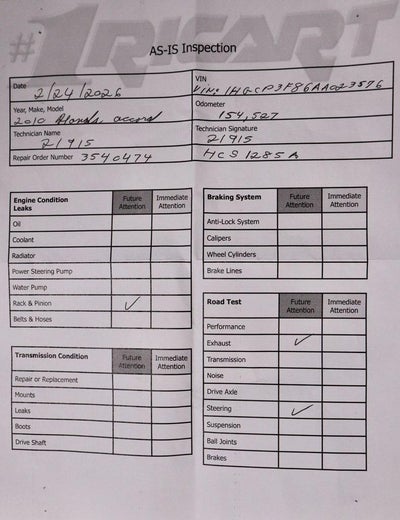 #1RICART
AS-IS Inspection
Date 2/24/2026
VIN
VIN: 1HGCP3F86AA023576
Year, Make, Model
2010 Honda accord
Odometer
154,527
Technician Name
21915
Technician Signature
21915
Repair Order Number 3540474
HCS1285A
Engine Condition Future Attention Immediate Attention
Leaks
Oil
Coolant
Radiator
Power Steering Pump
Water Pump
Rack & Pinion ✓
Belts & Hoses
Transmission Condition Future Attention Immediate Attention
Repair or Replacement
Mounts
Leaks
Boots
Drive Shaft
Braking System Future Attention Immediate Attention
Anti-Lock System
Calipers
Wheel Cylinders
Brake Lines
Road Test Future Attention Immediate Attention
Performance
Exhaust ✓
Transmission
Noise
Drive Axle
Steering ✓
Suspension
Ball Joints
Brakes